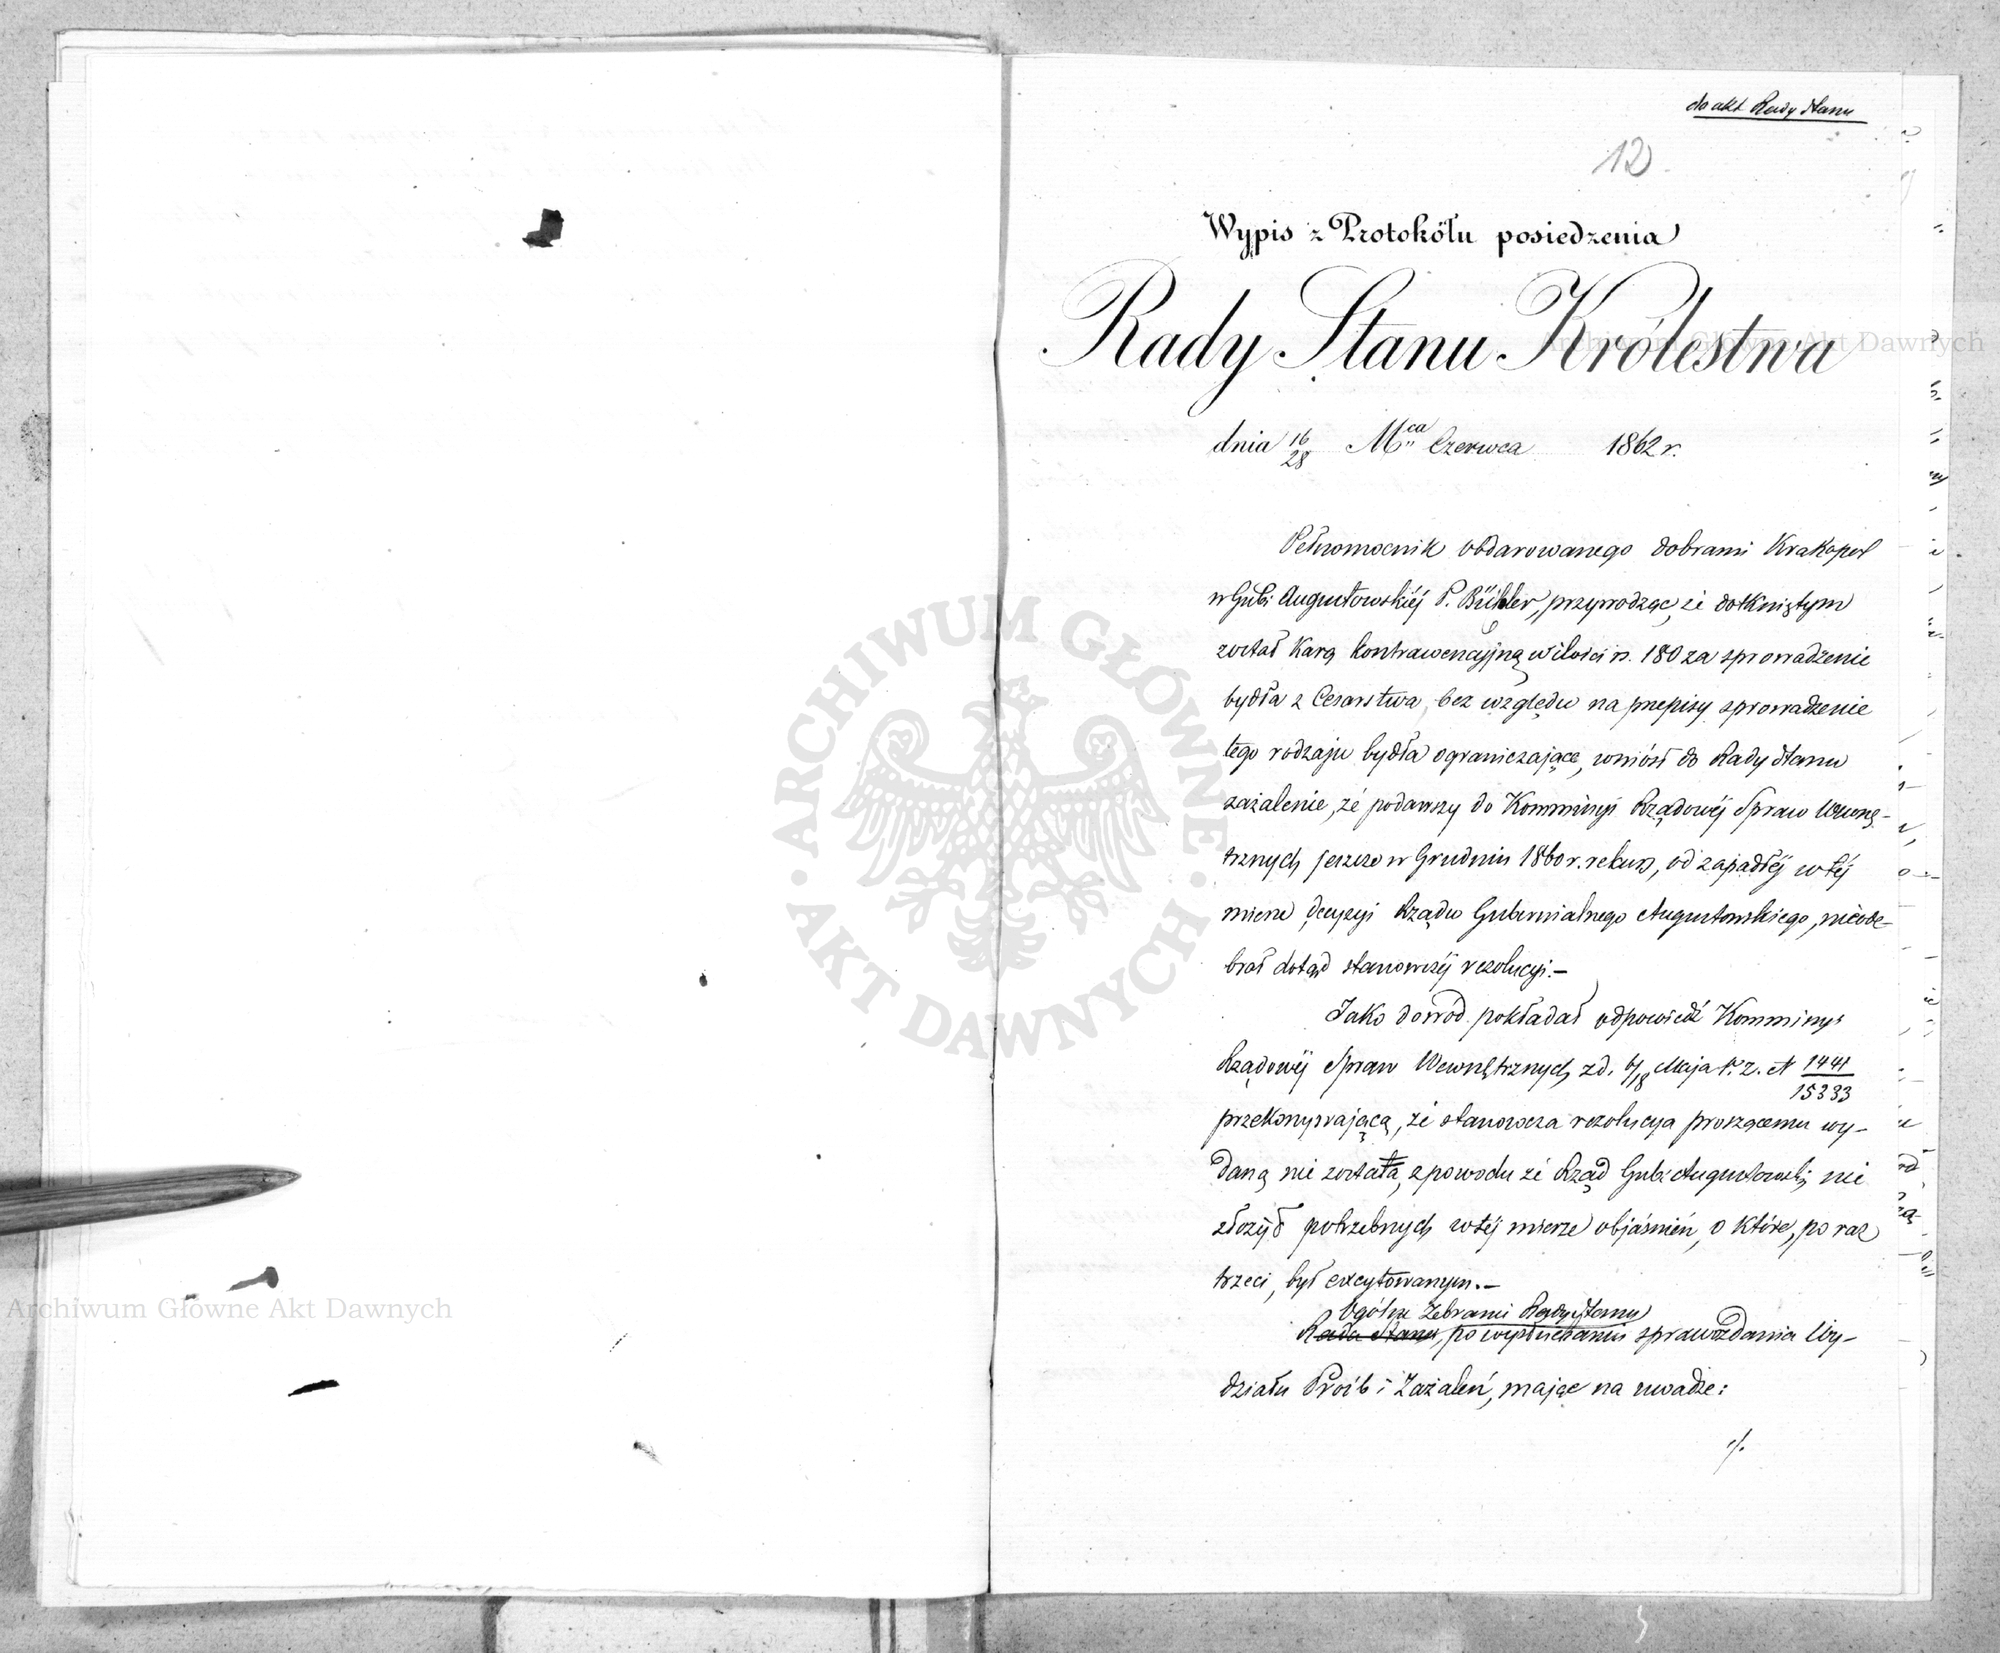 do akt Rady Stanu
12
Wypis z Protokółu posiedzenia
Rady Stanu Królestwa
dnia 16/28 Mca Czerwca 1862 r.
Pełnomocnik obdarowanego dobrami Krakopol
w Gubi Augustowskiéj P. Bühler, przywodząc, że dotkniętym
został karą kontrawencyjną w ilości rs. 180 za sprowadzenie
bydła z Cesarstwa, bez względu na przepisy sprowadzenie
tego rodzaju bydła ograniczające, wniósł do Rady Stanu
zażalenie, że podawszy do Kommissyi Rządowéj Spraw Wewnę-
trznych jeszcze w Grudniu 1860 r. rekurs, od zapadłéj w téj
mierze decyzyi Rządu Gubernialnego Augustowskiego, nieode-
brał dotąd stanowczéj rezolucyi.—
Jako dowód pokładał odpowiedź Kommissyi
Rządowéj Spraw Wewnętrznych z d. 6/18 Maja r. z. N 1441/15333
przekonywającą, że stanowcza rezolucya proszącemu wy-
daną nie została, z powodu że Rząd Gub: Augustowski nie
złożył potrzebnych w téj mierze objaśnień, o które, po raz
trzeci, był excytowanym.—
Ogólne Zebranie Rady Stanu
Rada Stanu, po wysłuchaniu sprawozdania Wy-
działu Próśb i Zażaleń, mając na uwadze:
./.
Archiwum Główne Akt Dawnych
ARCHIWUM GŁÓWNE · AKT DAWNYCH ·
Archiwum Główne Akt Dawnych